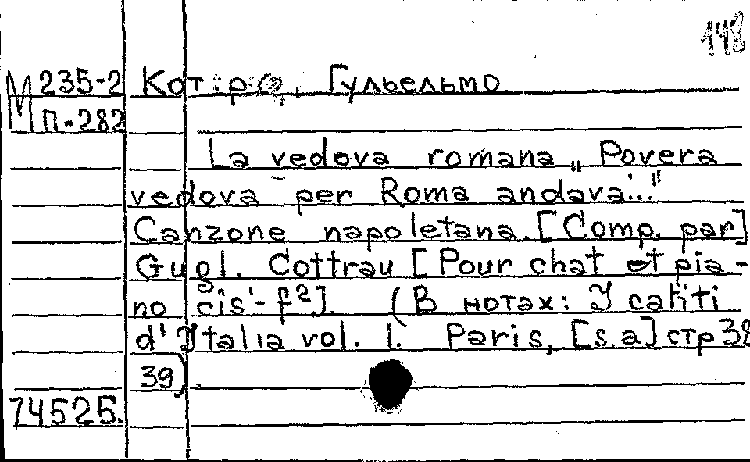 148
М 235-2 Коттро, Гульельмо
П-282
La vedova romana „Povera
vedova per Roma andava..."
Canzone napoletana. [Comp. par]
Gugl. Cottrau [Pour chat et pia-
no cis'-f²]. (В нотах: I canti
d'Italia vol. 1. Paris, [s.a] стр 38
39).
74525.